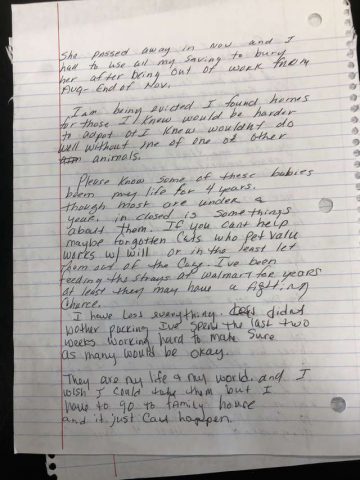 She passed away in Nov and I
had to use all my saving to bury
her after being out of work from
Aug- End of Nov.
I am being evicted I found homes
for those I knew would be harder
to adopt or I knew wouldnt do
well without one of one of other
animals.
Please know some of these babies
been my life for 4 years.
though most are under a
year. in closed is some things
about them. If you cant help
maybe forgotten Cats who pet value
works w/ will or in the least let
them out of the Cage. I've been
feeding the strays at Walmart for years
at least they may have a fighting
Chance.
I have Loss everything. didnt
bother packing I've spend the last two
weeks working hard to make sure
as many would be okay.
They are my life & my world. and I
wish I could take them but I
have to go to family house
and it just Cant happen.